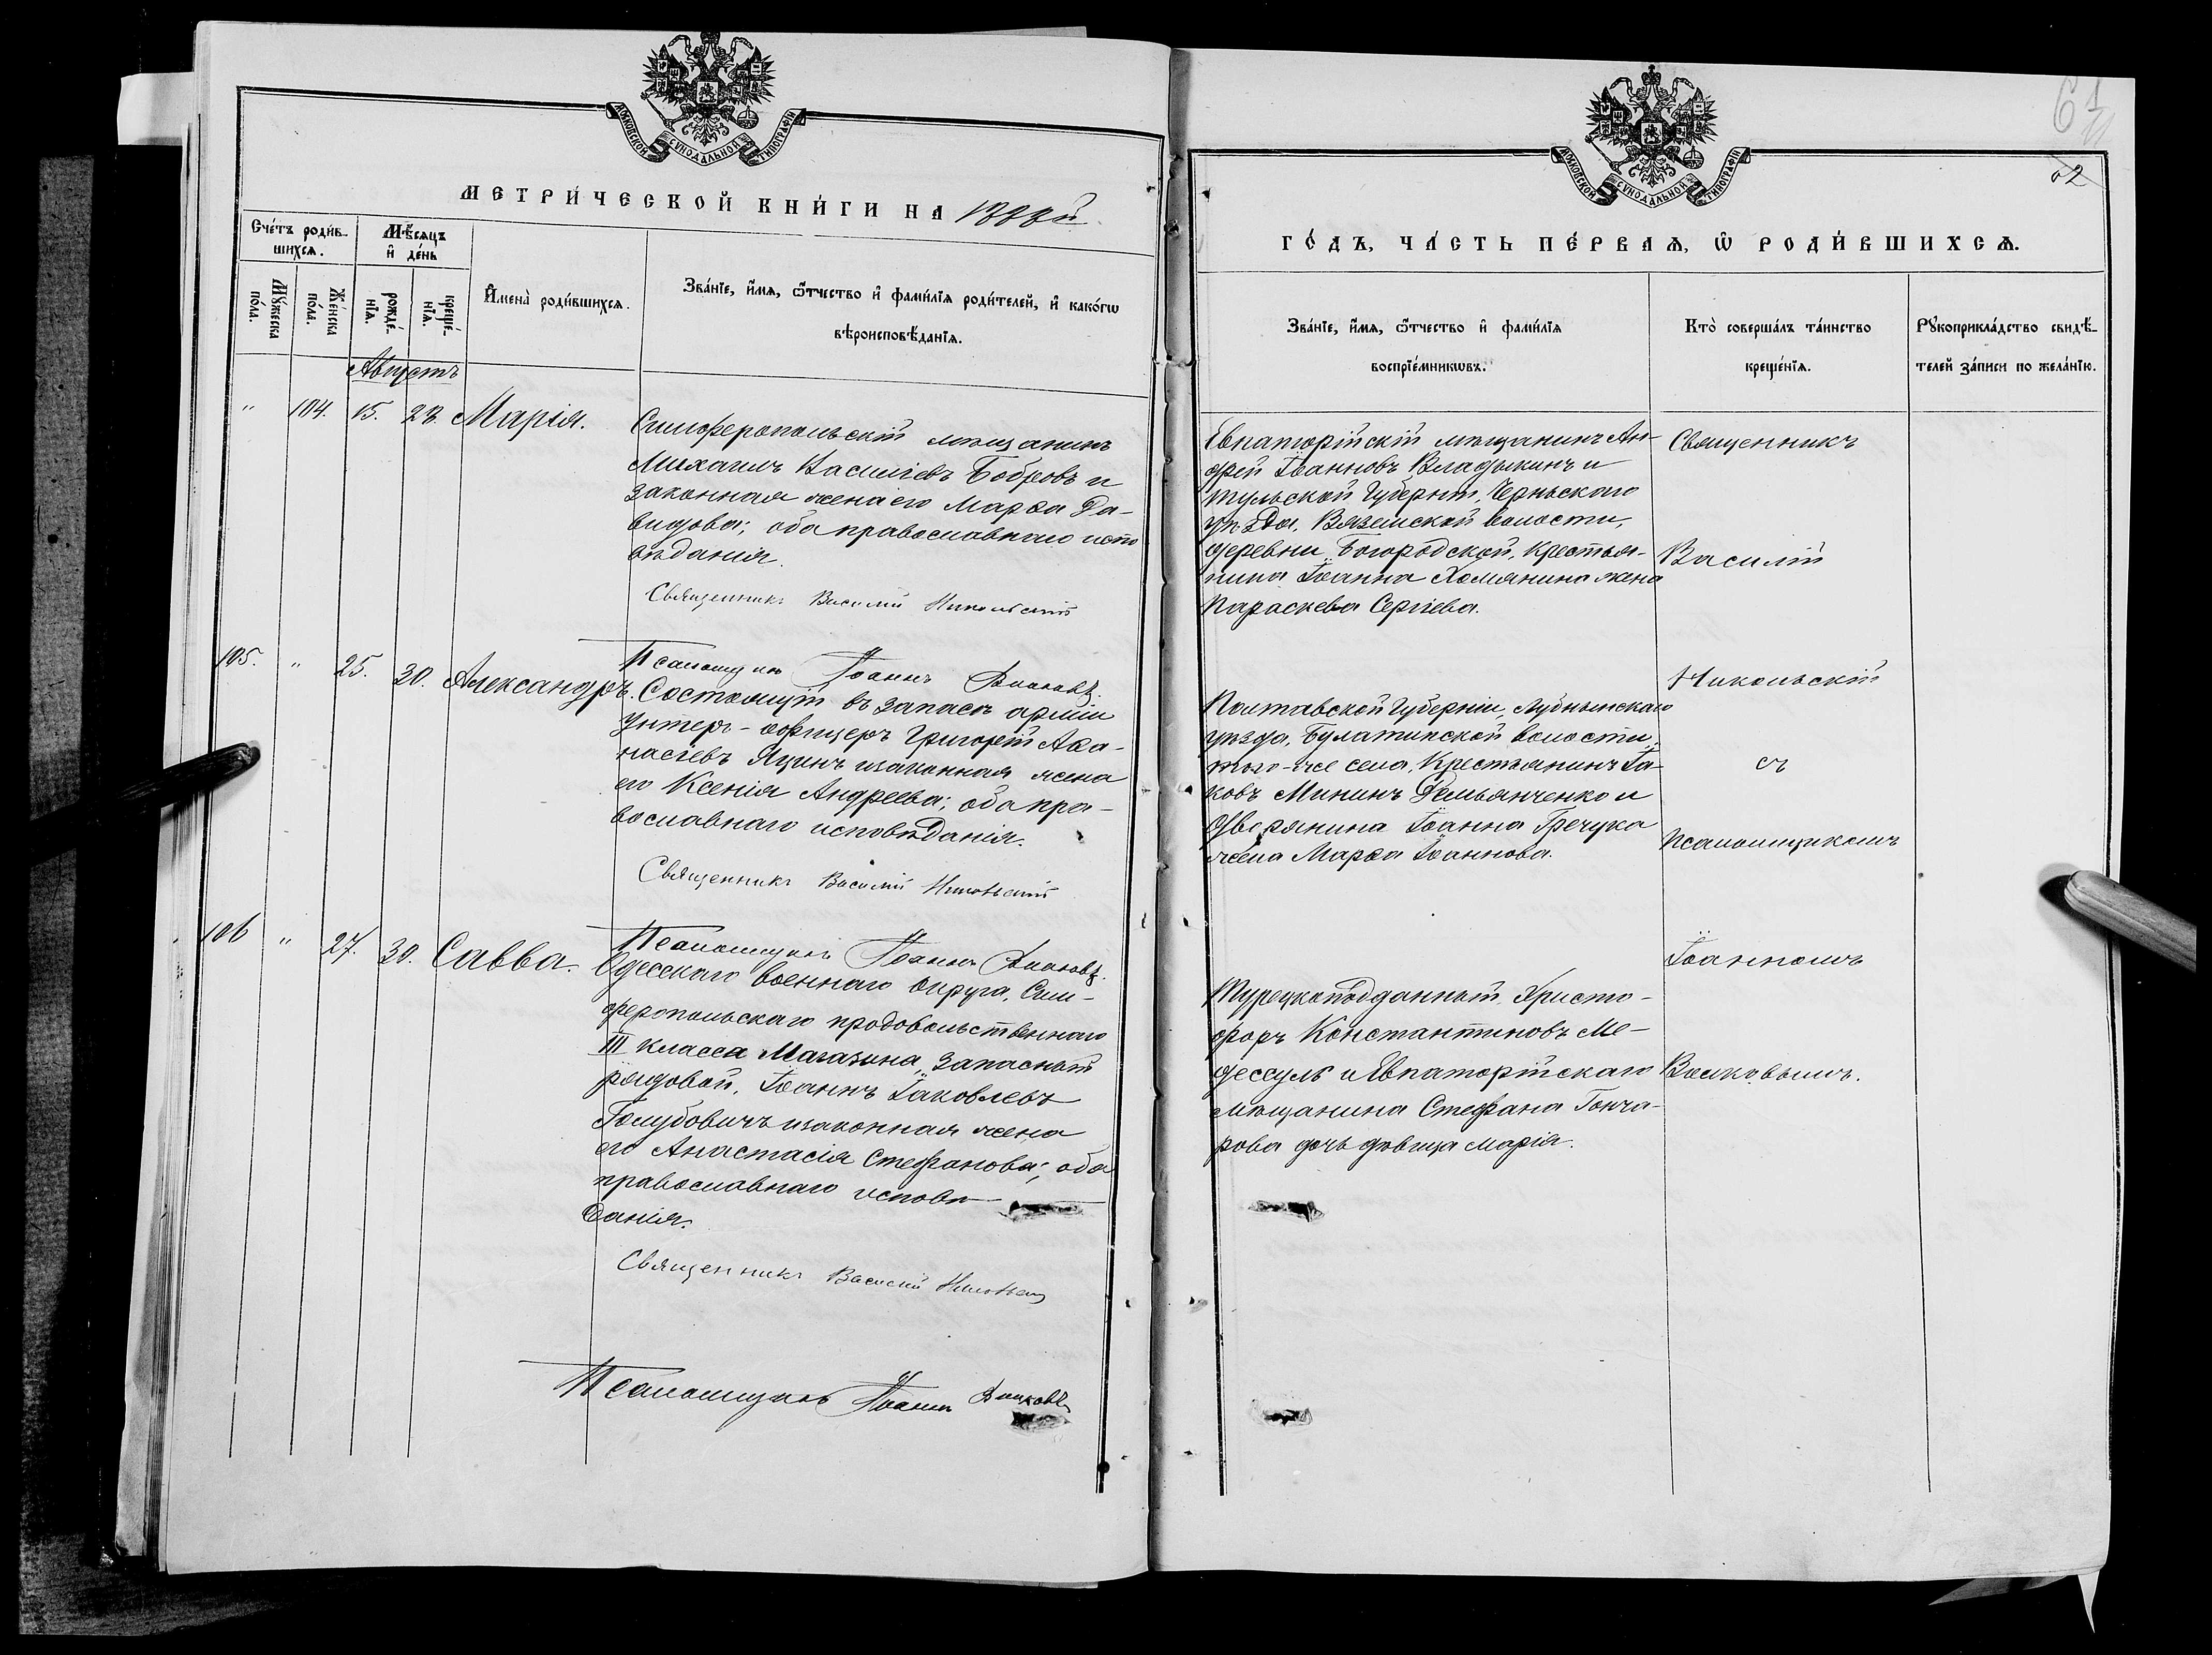 МОСКОВСКОЙ СѴНОДАЛЬНОЙ ТИПОГРАФІИ
МЕТРИ́ЧЕСКОЙ КНИ́ГИ НА 1888й
Сче́тъ роди́в-
шихсѧ.
Мѣ́сѧцъ
и҆ де́нь
Мꙋ́жеска
по́ла.
Же́нска
по́ла.
рожде́-
нїѧ.
креще́-
нїѧ.
И҆мена̀ роди́вшихсѧ.
Зва́нїе, и҆́мѧ, ѻ҆́тчество и҆ фами́лїѧ роди́телей, и҆ како́гѡ
вѣроисповѣ́данїѧ.
Августъ
" 104. 15. 28. Марія.
Симферопольскій мѣщанинъ
Михаилъ Васильевъ Бобровъ и
законная жена его Марѳа Да-
видова; оба православнаго испо
вѣданія.
Священникъ Василій Никольскій
Псаломщикъ Іоаннъ Волковъ.
105. " 25. 30. Александръ.
Состоящій въ запасѣ арміи
унтеръ-офицеръ Григорій Аѳа-
насіевъ Яцинъ и законная жена
его Ксенія Андреева; оба пра-
вославнаго исповѣданія.
Священникъ Василій Никольскій
Псаломщикъ Іоаннъ Волковъ.
106 " 27. 30. Савва.
Одесскаго военнаго округа, Сим-
феропольскаго продовольственнаго
III класса Магазина, запасный
рядовой, Іоаннъ Іаковлевъ
Голубовичъ и законная жена
его Анастасія Стефанова; оба
православнаго исповѣ-
данія.
Священникъ Василій Никольскій
Псаломщикъ Іоаннъ Волковъ
61
62
МОСКОВСКОЙ СѴНОДАЛЬНОЙ ТИПОГРАФІИ
ГО́ДЪ, ЧА́СТЬ ПЕ́РВАѦ, Ѡ҆ РОДИ́ВШИХСѦ.
Зва́нїе, и҆́мѧ, ѻ҆́тчество и҆ фами́лїѧ
воспрїе́мникѡвъ.
Кто̀ соверша́лъ та́инство
креще́нїѧ.
Рꙋкоприкла́дство свидѣ́-
телей за́писи по жела́нїю.
Евпаторійскій мѣщанинъ Ан-
дрей Іоанновъ Владыкинъ и
Тульской Губерніи, Черньскаго
уѣзда, Вяземской волости,
деревни Богородской, Крестья-
нина Іоанна Хомянина жена
Параскева Сергіева.
Полтавской Губерніи, Лубнынскаго
уѣзда, Булатинской волости,
того-же села, Крестьянинъ Іа-
ковъ Мининъ Демьянченко и
Дворянина Іоанна Гречука
жена Марѳа Іоаннова.
Турецкоподданный Христо-
форъ Константиновъ Ме-
дессуль и Евпаторійскаго
мѣщанина Стефана Гонча-
рова дочь дѣвица Марія.
Священникъ
Василій
Никольскій
съ
псаломщикомъ
Іоанномъ
Волковымъ.